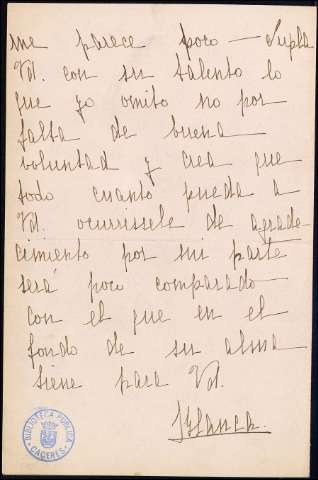 me parece poco — Supla
Vd. con su talento lo
que yo omito no por
falta de buena
voluntad y crea que
todo cuanto pueda a
Vd. ocurrissele de agrade
cimiento por mi parte
será poco comparado
con el que en el
fondo de su alma
tiene para Vd.
Blanca.
BIBLIOTECA PÚBLICA
CÁCERES